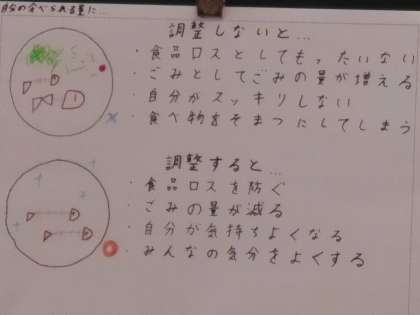 自分の食べられる量に…
調整しないと…
・食品ロスとしてもったいない
・ごみとしてごみの量が増える
・自分がスッキリしない
・食べ物をそまつにしてしまう
調整すると…
・食品ロスを防ぐ
・ごみの量が減る
・自分が気持ちよくなる
・みんなの気分をよくする